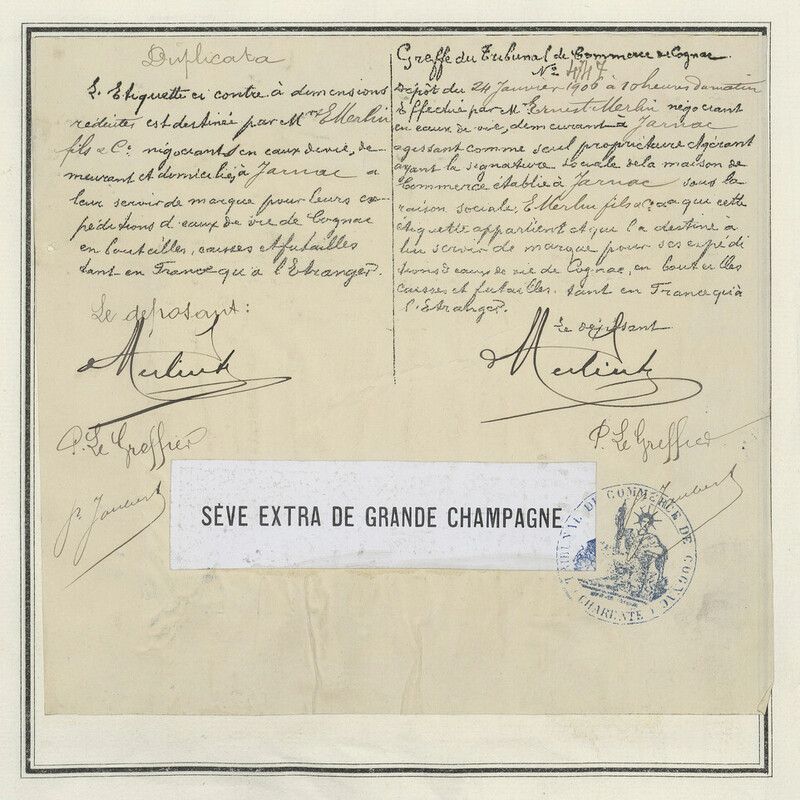 Duplicata
L'Etiquette ci contre à dimensions
réduites est destinée par Mrs E Merlin
fils & Ce négociants en eaux de vie, de-
meurant et domiciliés à Jarnac a
leur servir de marque pour leurs ex-
péditions d'eaux de vie de Cognac
en bouteilles, caisses et futailles
tant en France qu'a l'Etranger.
Le déposant:
Merlin
P. Le Greffier
Greffe du Tribunal de Commerce de Cognac.
No 4747
Dépôt du 24 Janvier 1906 à 10 heures du matin
Effectué par Mr Ernest Merlin négociant
en eaux de vie, demeurant à Jarnac
agissant comme seul propriétaire et gérant
ayant la signature sociale de la maison de
Commerce établie à Jarnac sous la
raison sociale, E Merlin fils & Ce à que cette
étiquette appartient et qui l'a destiné à
lui servir de marque pour ses expédi
tions d'eaux de vie de Cognac, en bouteilles
caisses et futailles, tant en France qu'à
l'Etranger.
Le déposant
Merlin
P. Le Greffier:
SÈVE EXTRA DE GRANDE CHAMPAGNE
TRIBUNAL DE COMMERCE DE COGNAC
CHARENTE